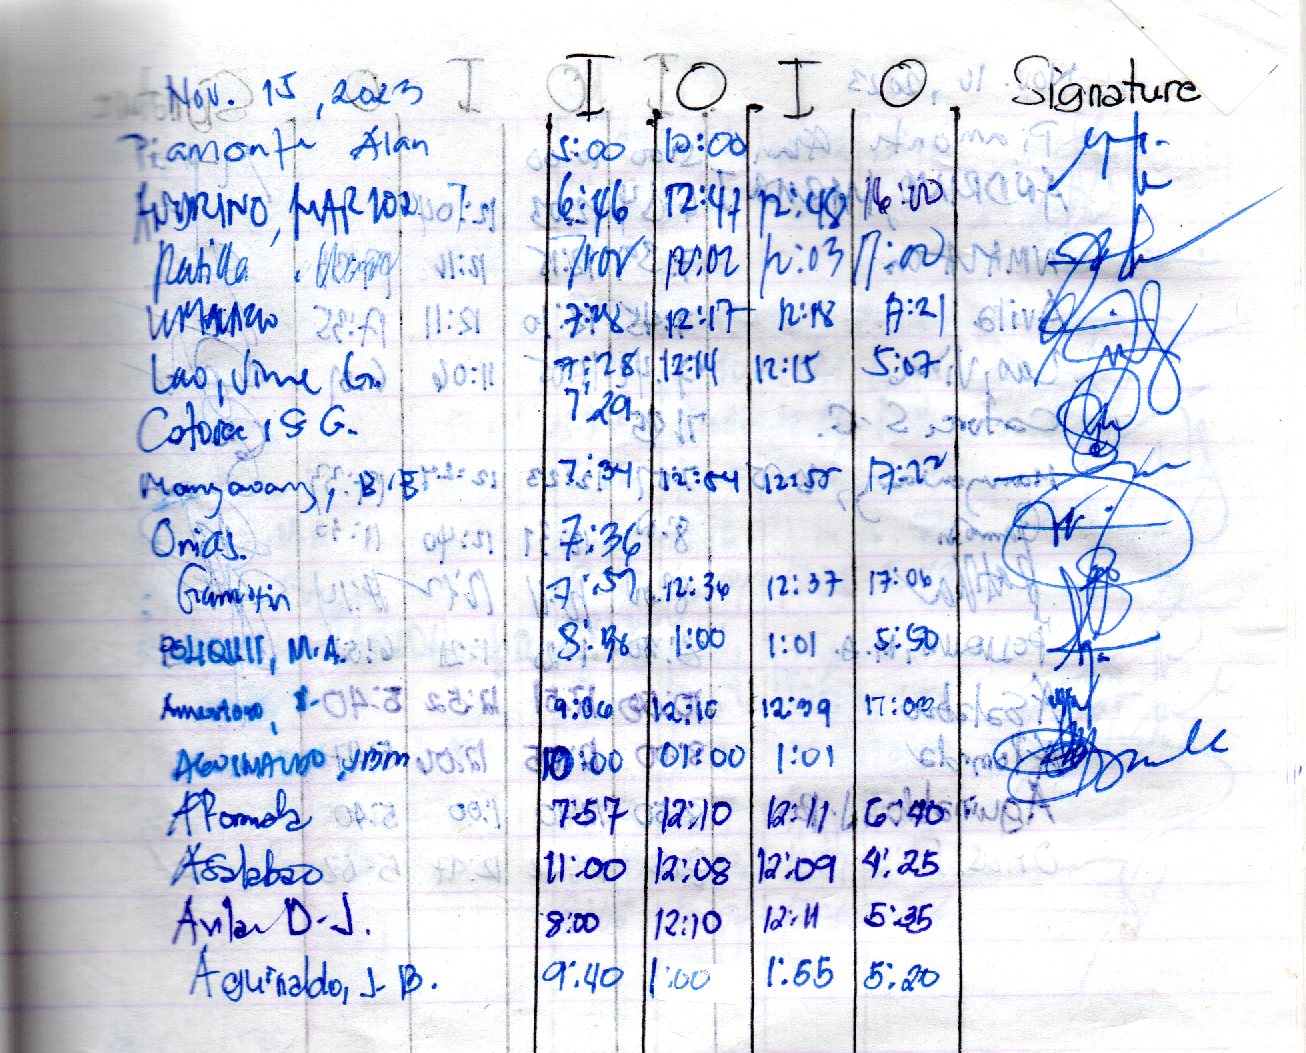 Nov. 15, 2023 I O I O Signature
Piamonte Alan 5:00 12:00
ANDRINO, MARJOE 6:46 12:47 12:48 16:00
Padilla 12:02 12:03 17:02
7:28 12:17 12:18 17:21
Lao, Vince G. 7:28 12:14 12:15 5:07
Catorce, S G. 7:29
Mangawang, B. B 7:34 12:54 12:55 17:22
Orias. 7:36
7:57 12:36 12:37 17:06
POLIQUIT, M.A. 8:36 1:00 1:01 5:50
9:06 12:10 12:39 17:02
AGUINALDO 10:00 01:00 1:01
7:57 12:10 12:11 6:40
Asalabao 11:00 12:08 12:09 4:25
Avila D-J. 8:00 12:10 12:11 5:35
Aguinaldo, J. B. 9:40 1:00 1:55 5:20